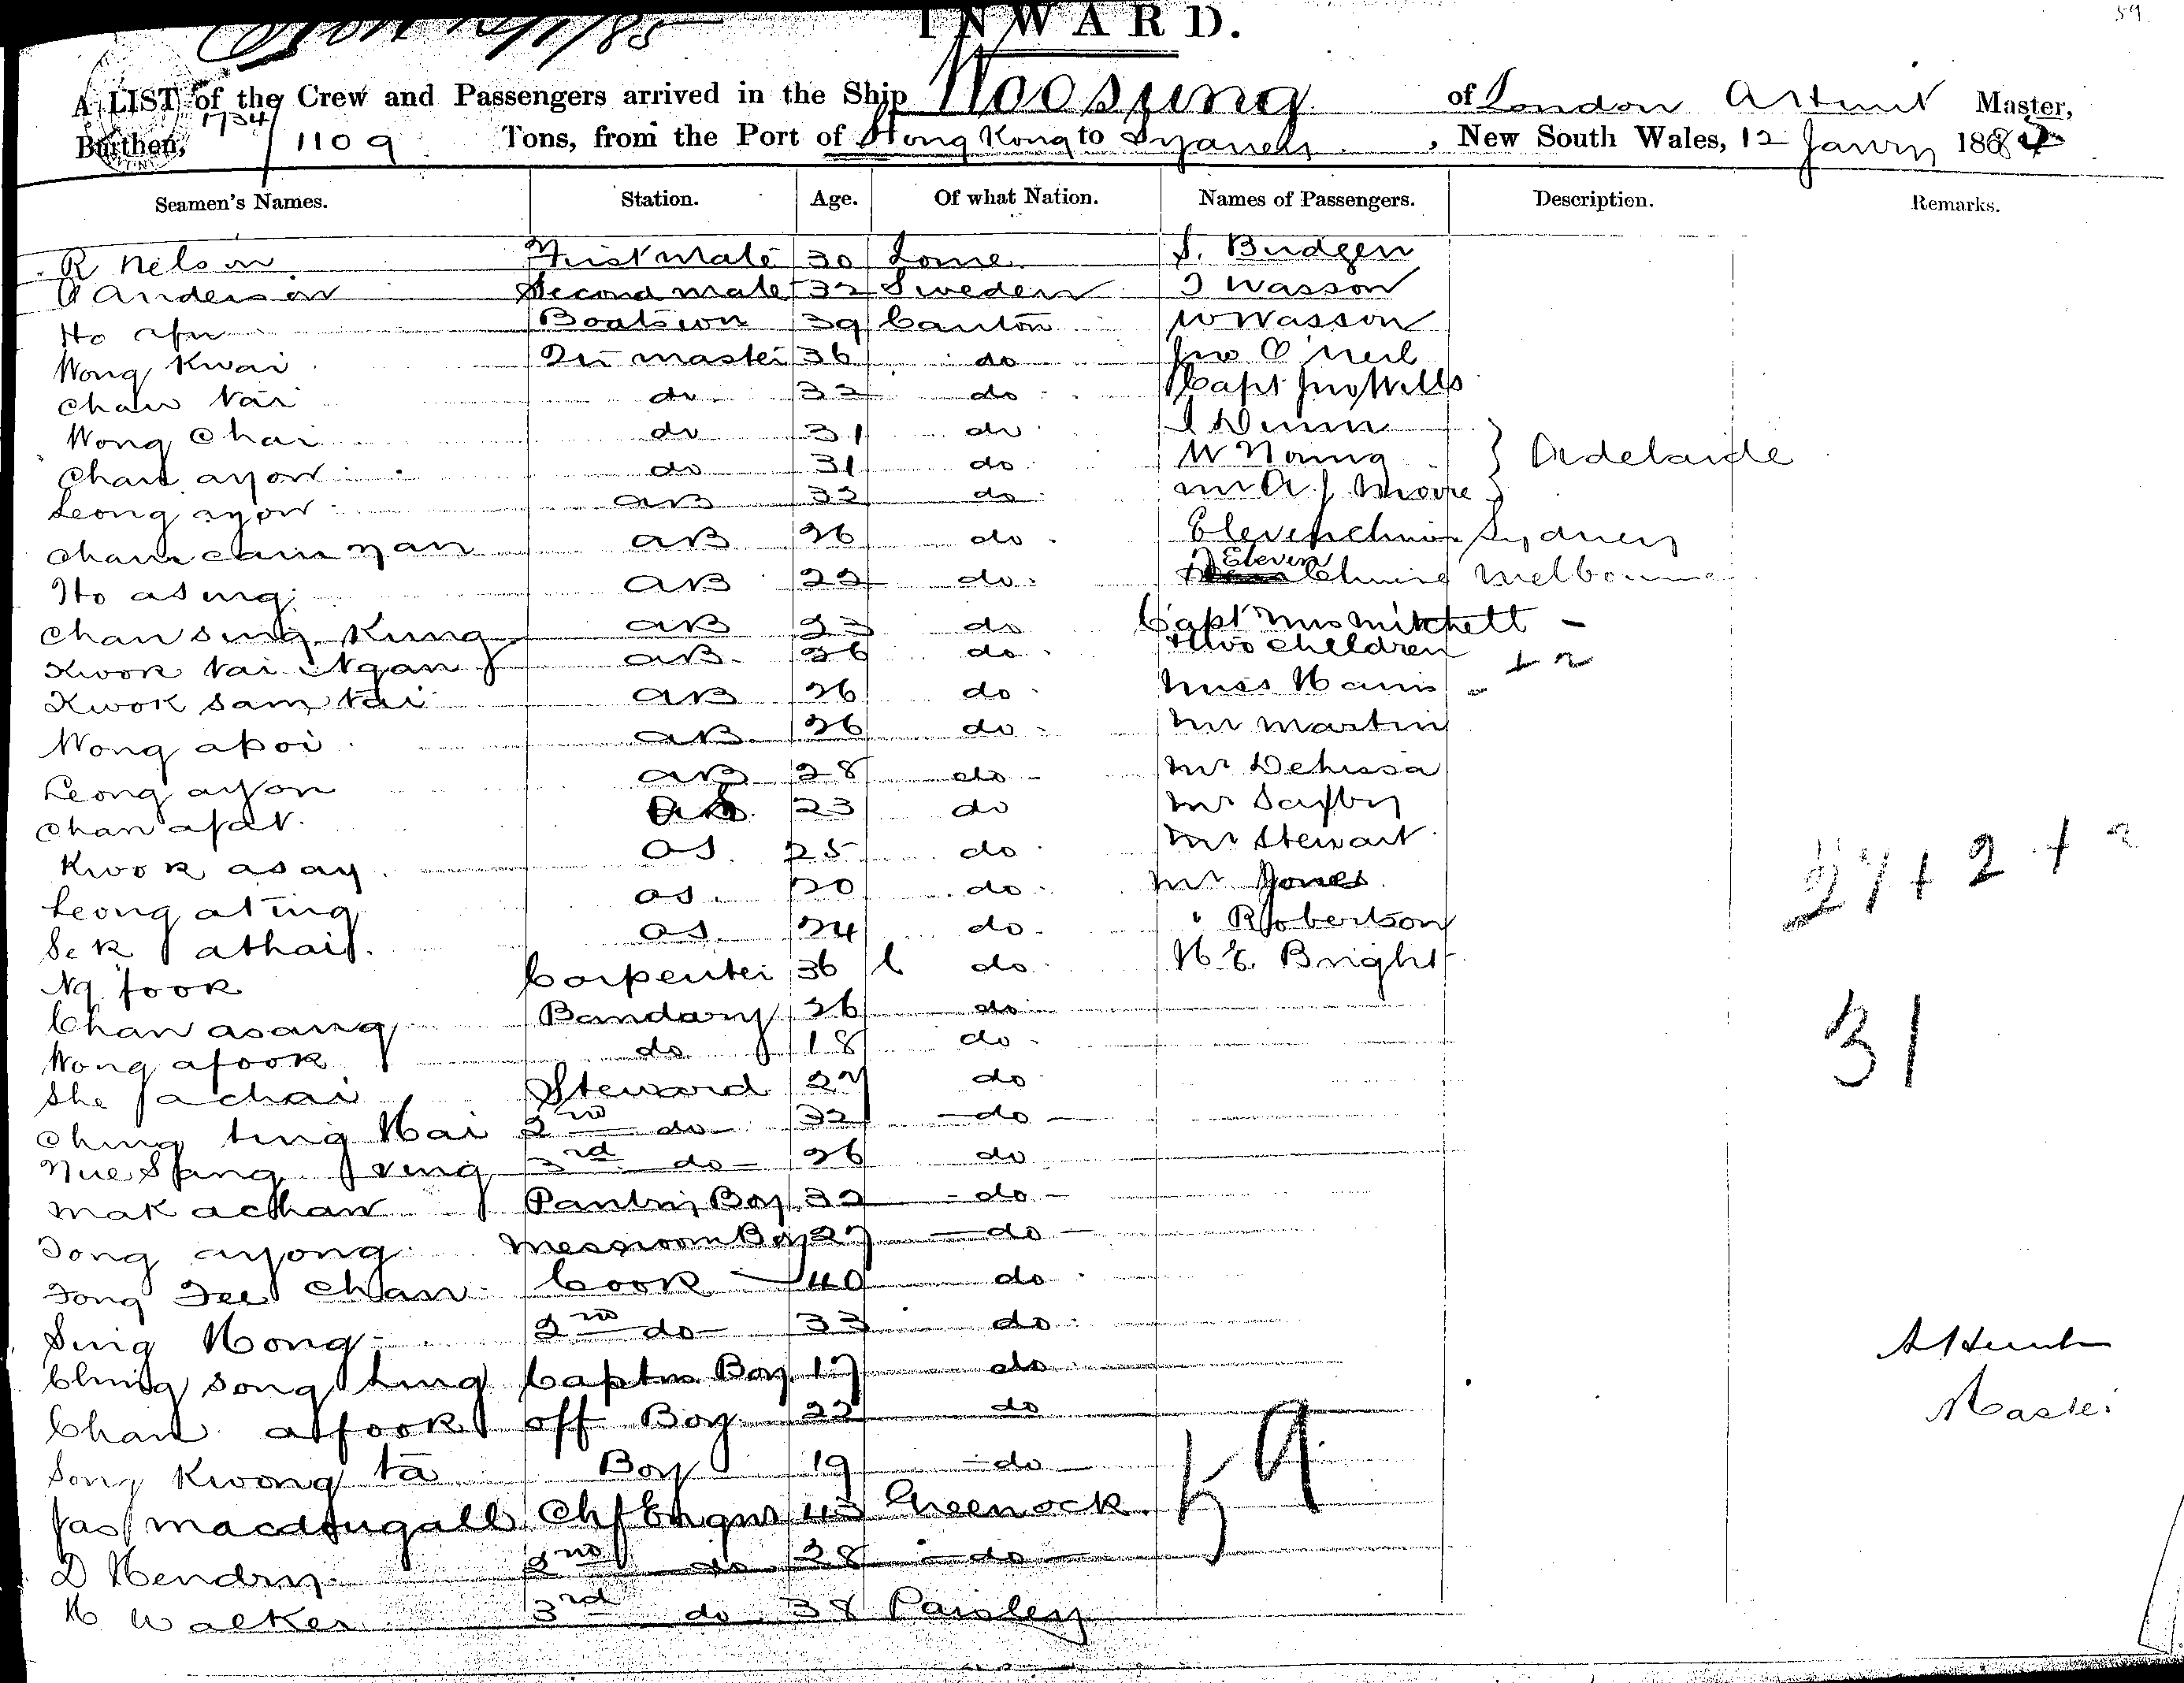 59
INWARD.
A LIST of the Crew and Passengers arrived in the Ship Woosung of London Master,
Burthen, 1734/1109 Tons, from the Port of Hong Kong to Sydney, New South Wales, 12 Janry 1884
Seamen's Names. Station. Age. Of what Nation. Names of Passengers. Description. Remarks.
R Nelson First Mate 30 S. Budgen
Anderson Second mate 32 Sweden J Wasson
Ho Boatswn 39 Canton W Wasson
Wong Kwai Qr master 36 do Jno O'Neil
Chaw Tai do 32 do Capt Jno Wills
Wong Chai do 31 do
Chan ayow do 31 do W Young } Adelaide
Leong ayow AB 32 do A J Moore
Cham cam yan AB 26 do Eleven Chinese Sydney
Ho asing AB 22 do Eleven Chinese Melbourne
Chan sing Kung AB 23 do Capt Mrs Mitchell -
Kwok tai Ngan AB 26 do + two children + 2
Kwok sam tai AB 26 do Miss Harris -
Wong apoi AB 26 do Mr Martin
Leong ayon AB 28 do Mr
Chan afat 23 do Mr Saxby
Kwok asay OS 25 do Mr Stewart
Leong ating OS 20 do Mr Jones 27 + 2 + 2
Sek athai OS 24 do " Robertson
Ng fook Carpenter 36 do H E. Bright
Chan asang Bandary 26 do
Wong afook do 18 do 31
She achai Steward 27 do
Ching ting Hai 2nd do 32 do
3rd do 26 do
Mak achaw Pantry Boy 32 do
Tong ayong Messroom Boy 27 do
Tong Tee Chan Cook 40 do
Sing Hong 2nd do 33 do
Ching song ting Captns Boy 17 do
Chan afook off Boy 22 do Master
Song Kwong ta Boy 19 do 59
Jas Macdougall Chf Engnr 43 Greenock
D Hendry 2nd do 28 do
H Walker 3rd do 38 Paisley